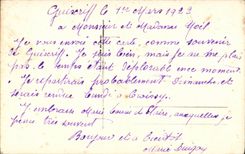 Guiscriff le 1er Mars 1923
Monsieur et Madame Noil
Je vous envoie cette carte, comme souvenir
de Guiscriff. Je suis loin, mais je ne m'en plais
pas, le temps étant déplorable en ce moment.
Je repartirai probablement Dimanche et
serais rendue Lundi à
J'embrasse Marie Louise et auxquelles je
pense très souvent.
Bonjour et à bientôt
Marie